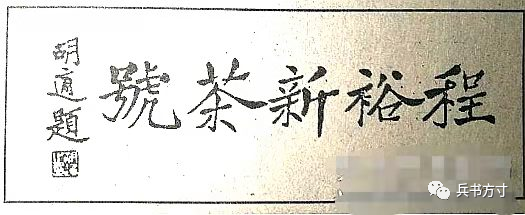 程裕新茶號
胡適題
兵书方寸